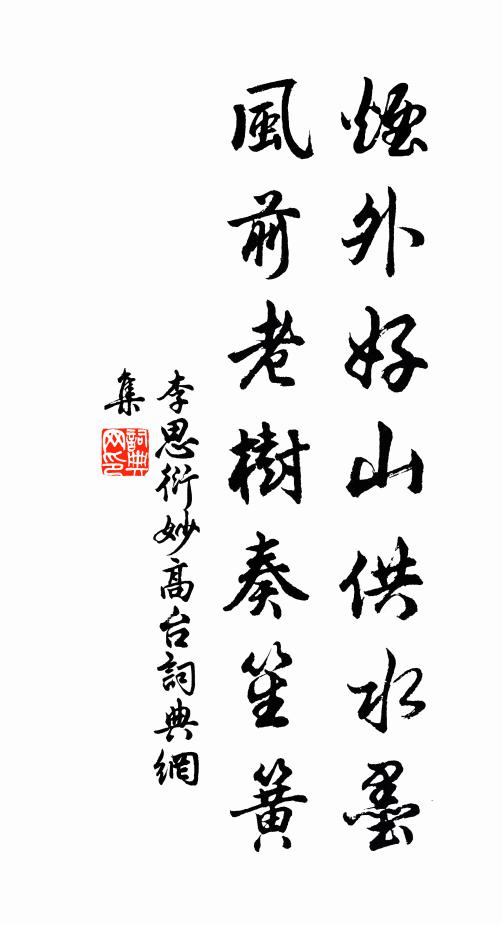 煙外好山供水墨
風前老樹奏笙簧
李思衍妙高台詞典網
集
詞典
网印